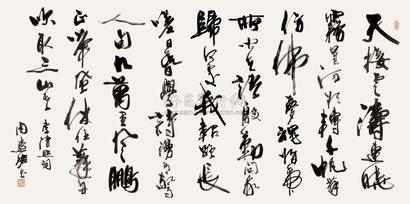 天接云涛连晓
雾星河欲转千帆舞
仿佛梦魂归帝
所闻天语殷勤问我
归何处我报路长
嗟日暮学诗谩有惊
人句九万里风鹏
正举风休住蓬舟
吹取三山去 李清照词